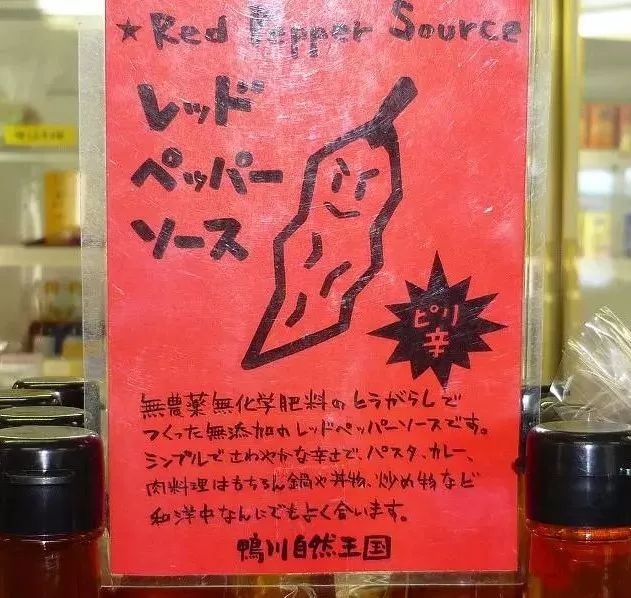 ★Red Pepper Source
レッド
ペッパー
ソース
ピリ
辛
無農薬無化学肥料のとうがらしで
つくった無添加のレッドペッパーソースです。
シンプルでさわやかな辛さで、パスタ、カレー、
肉料理はもちろん鍋や丼物、炒め物など
和洋中なんにでもよく合います。
鴨川自然王国